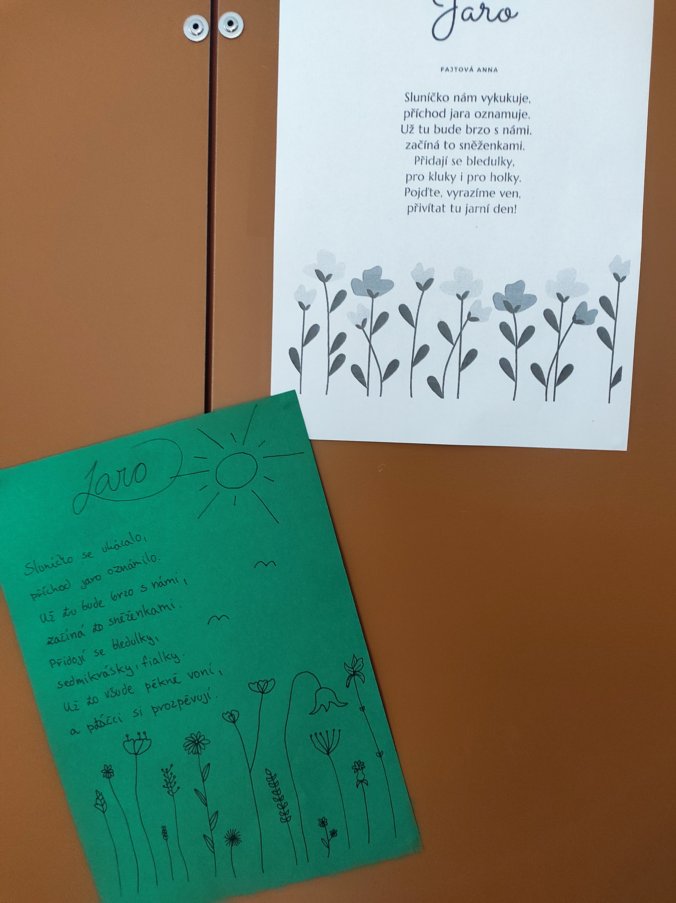 Jaro
FAJTOVÁ ANNA
Sluníčko nám vykukuje,
příchod jara oznamuje.
Už tu bude brzo s námi,
začíná to sněženkami.
Přidají se bledulky,
pro kluky i pro holky.
Pojďte, vyrazíme ven,
přivítat tu jarní den!
Jaro
Sluníčko se ukázalo,
příchod jaro oznámilo.
Už tu bude brzo s námi,
začíná to sněženkami.
Přidají se bledulky,
sedmikrásky, fialky.
Už to všude pěkně voní,
a ptáčci si prozpěvují.